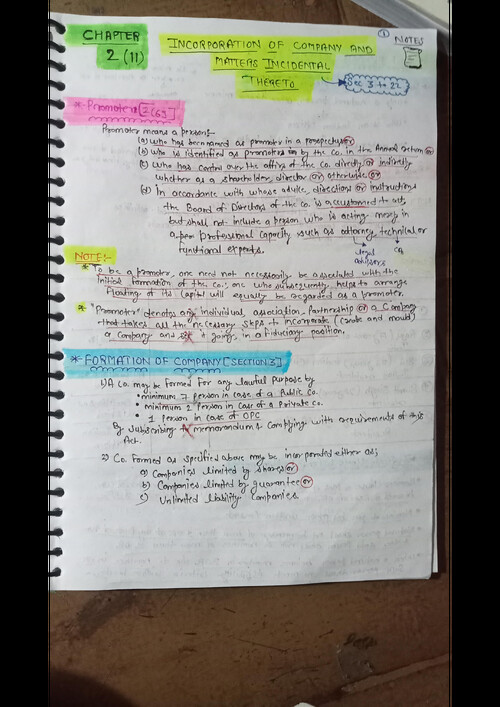 CHAPTER
2 (11)
INCORPORATION OF COMPANY AND
MATTERS INCIDENTAL
THERETO
Sec 3 to 22
① NOTES
* Promoter [2(69)]
Promoter means a person:-
(a) who has been named as promoter in a prospectus or
(b) who is identified as promoters by the Co. in the Annual return or
(c) who has control over the affairs of the Co. directly or indirectly
whether as a shareholder, director or otherwise or
(d) in accordance with whose advice, directions or instructions
the Board of Directors of the Co. is accustomed to act,
but shall not include a person who is acting merely in
a professional capacity such as attorney, technical or
functional experts.
legal advisors
CA
NOTE:-
* To be a promoter, one need not necessarily be associated with the
initial formation of the co.; one who subsequently helps to arrange
floating of its capital will equally be regarded as a promoter.
* 'Promoter' denotes any individual, association, Partnership or a Company
that takes all the necessary steps to incorporate (create and mould)
a Company and it going, in a fiduciary position.
* FORMATION OF COMPANY [SECTION 3]
1) A Co. may be formed for any lawful purpose by
• minimum 7 person in case of a Public Co.
• minimum 2 person in case of a Private Co.
• 1 person in case of OPC
By subscribing memorandum & Complying with requirements of this
Act.
2) Co. formed as specified above may be incorporated either as;
a) Companies limited by shares or
b) Companies limited by guarantee or
c) Unlimited liability Companies.